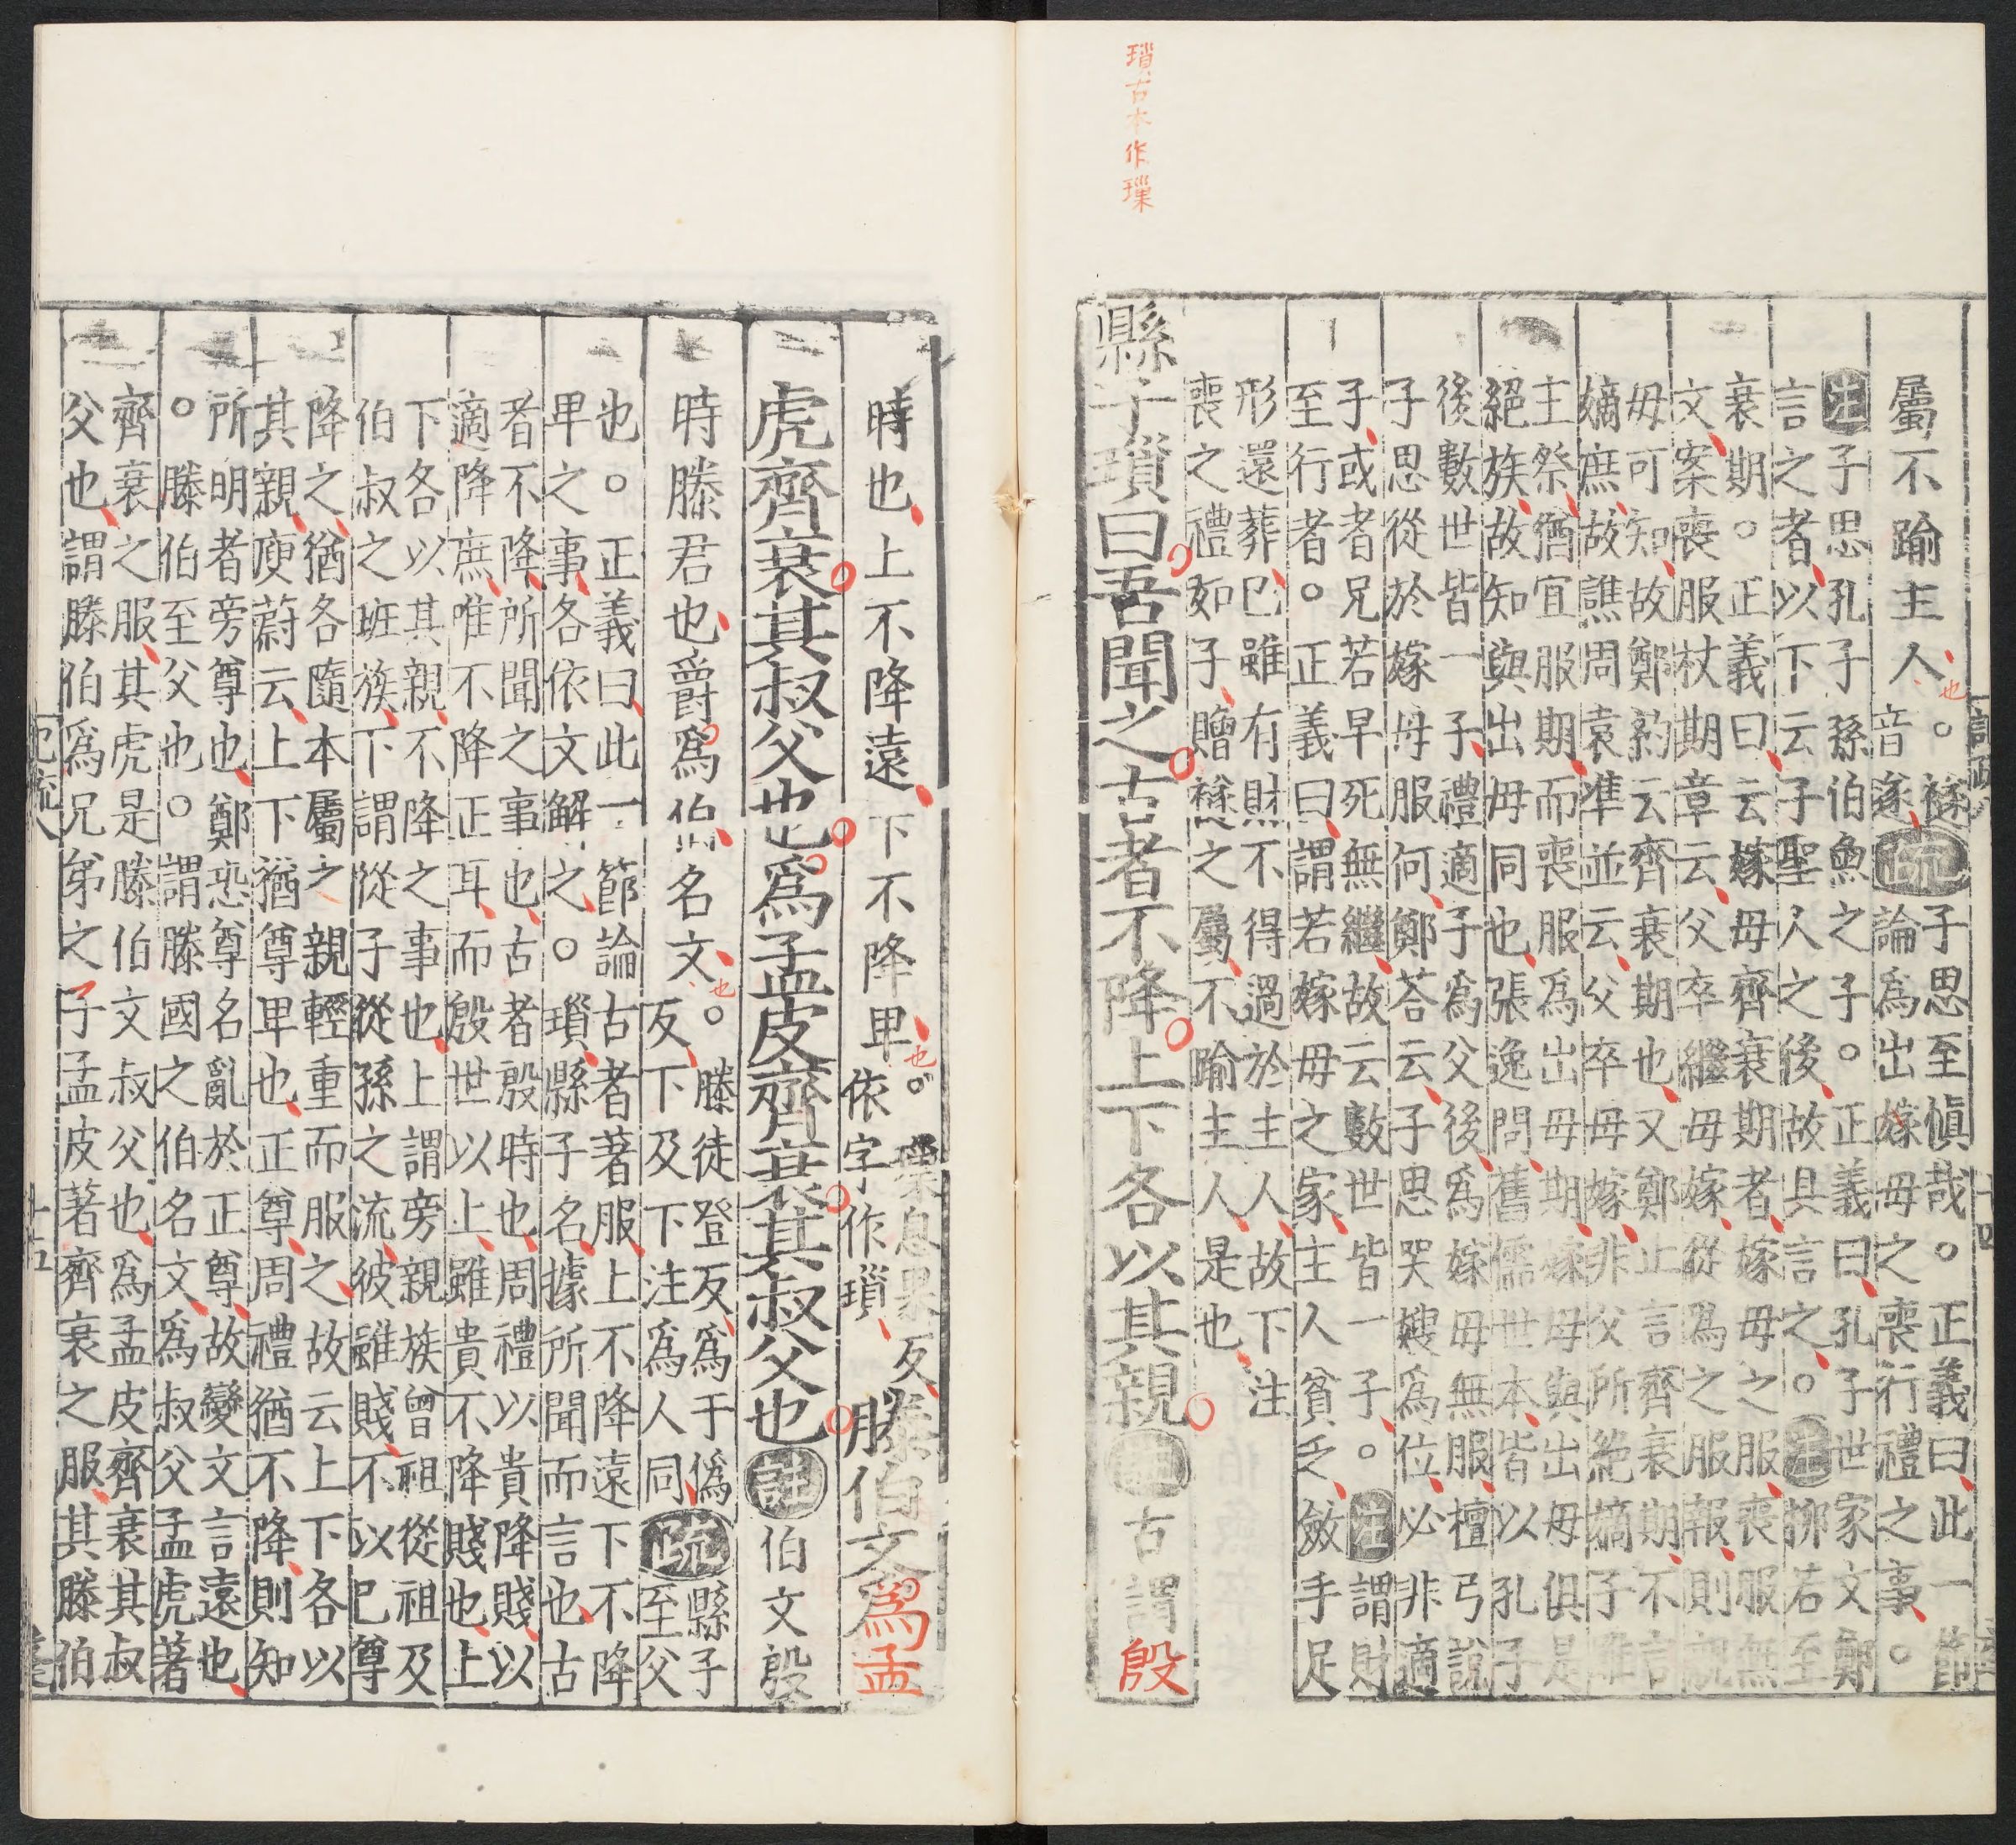 瑣古本作璅
屬不踰主人也。襚
音遂疏子思至愼哉。正義曰此一節
論爲出嫁母之喪行禮之事。
注子思孔子孫伯魚之子。正義曰孔子世家文鄭
言之者以下云子聖人之後故具言之。注柳若至
衰期。正義曰云嫁母齊衰期者嫁母之服喪服無
文案喪服杖期章云父卒繼母嫁從爲之服報則親
母可知故鄭約云齊衰期也又鄭止言齊衰期不言
嫡庶故譙周袁準並云父卒母嫁非父所絶嫡子雖
主祭猶宜服期而喪服爲出母期嫁母與出母俱是
絕族故知與出母同也張逸問舊儒世本皆以孔子
後數世皆一子禮適子爲父後爲嫁母無服檀弓說
子思從於嫁母服何鄭荅云子思哭嫂爲位必非適
子或者兄若早死無繼故云數世皆一子。注謂財
至行者。正義曰謂若嫁母之家主人貧乏斂手足
形還葬巳雖有財不得過於主人故下注
喪之禮如子贈襚之屬不踰主人是也
縣子瑣曰吾聞之古者不降上下各以其親注古謂殷
時也上不降遠下不降卑也。璅息果反
依字作瑣滕伯文爲孟
虎齊衰其叔父也爲孟皮齊衰其叔父也註伯文殷
時滕君也爵爲伯名文也。滕徒登反爲于僞
反下及下注爲人同疏縣子至父
也。正義曰此一節論古者著服上不降遠下不降
卑之事各依文解之。瑣縣子名據所聞而言也古
者不降所聞之事也古者殷時也周禮以貴降賤以
適降庶唯不降正耳而殷世以上雖貴不降賤也上
下各以其親不降之事也上謂旁親族曾祖從祖及
伯叔之班族下謂從子從孫之流彼雖賤不以巳尊
降之猶各隨本屬之親輕重而服之故云上下各以
其親庾蔚云上下猶尊卑也正尊周禮猶不降則知
所明者旁尊也鄭恐尊名亂於正尊故變文言遠也
。滕伯至父也。謂滕國之伯名文爲叔父孟虎著
齊衰之服其虎是滕伯文叔父也爲孟皮齊衰其叔
父也謂滕伯爲兄弟之子孟皮著齊衰之服其滕伯